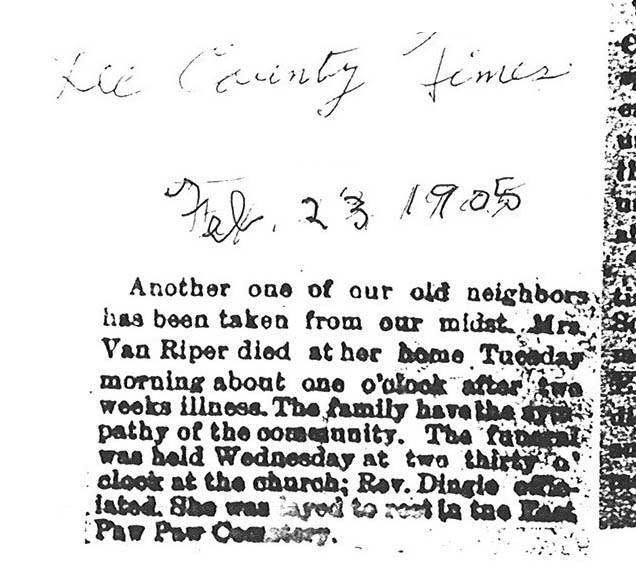 Lee County Times
Feb. 23 1905
Another one of our old neighbors
has been taken from our midst. Mrs.
Van Riper died at her home Tuesday
morning about one o'clock after two
weeks illness. The family have the sym-
pathy of the community. The funeral
was held Wednesday at two thirty o'
clock at the church; Rev. Dingle offic-
iated. She was layed to rest in the East
Paw Paw Cemetery.